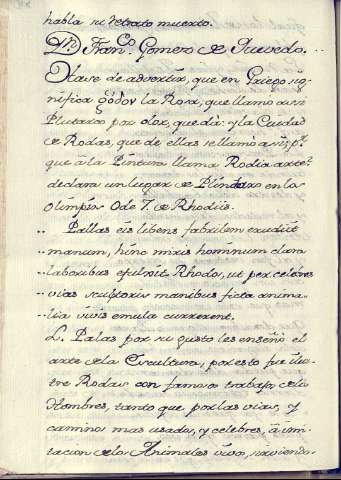 habla su retrato muerto.
Dn. Franco. Gomez de Quevedo.
Hase de advertir, que en Griego sig
nifica ρόδον la Rosa, que llamo assi
Plutarco por olor, que dà: y la Ciudad
de Rodas, que de ellas se llamò assi, pr.
que à la Pintura llama Rodia arte
declara un lugar de Pindaro en los
Olimpios Ode 7. de Rhodiis.
Pallas eis libens fabrilem erudiit
manum, hinc miris hominum clara
laboribus efulsit Rhodo, ut per celebres
vias sculptoris manibus ficta anima-
lia vivis emula currerent.
L. Palas por su gusto les enseñò el
arte de la Escultura, por esto fue ilus-
tre Rodas con famosos trabajos de los
Hombres, tanto que por las vias, y
caminos mas usados, y celebres, à imi-
tacion de los Animales vivos,